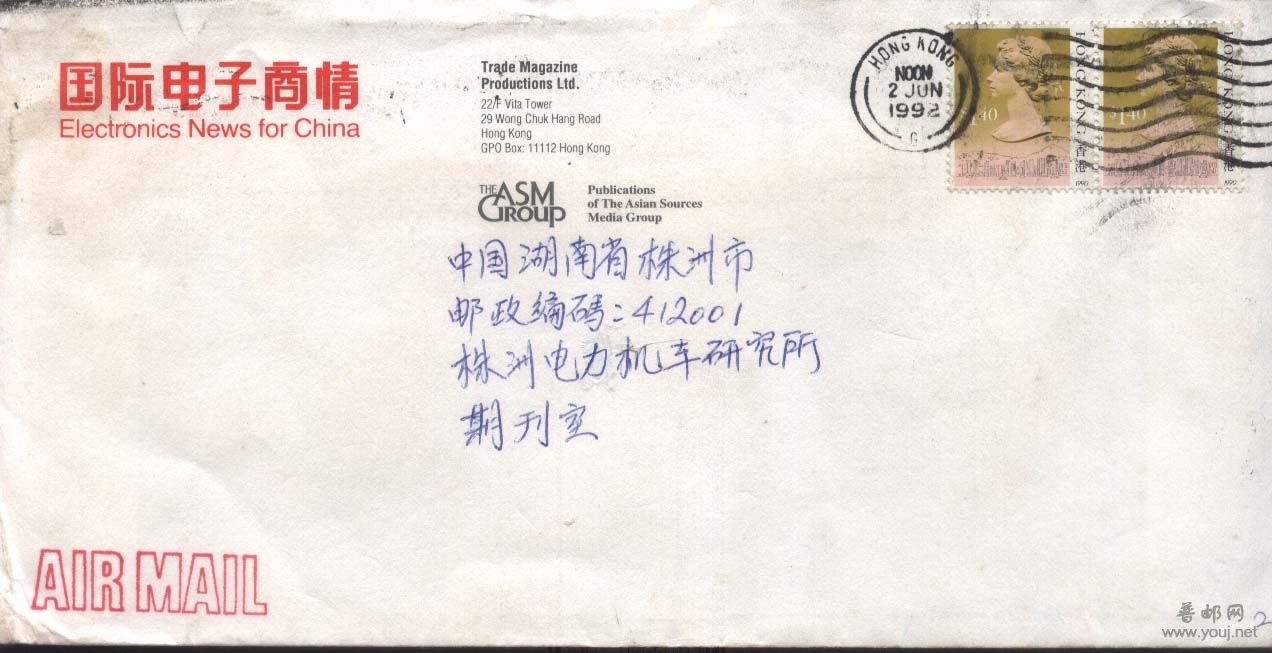 国际电子商情
Electronics News for China
Trade Magazine
Productions Ltd.
22/F Vita Tower
29 Wong Chuk Hang Road
Hong Kong
GPO Box: 11112 Hong Kong
THE ASM GROUP
Publications
of The Asian Sources
Media Group
HONG KONG
NOON
2 JUN
1992
G
$1.40
HONG KONG 香港
1990
$1.40
HONG KONG 香港
1990
中国湖南省株洲市
邮政编码:412001
株洲电力机车研究所
期刊室
AIR MAIL
普邮网
www.youj.net
2